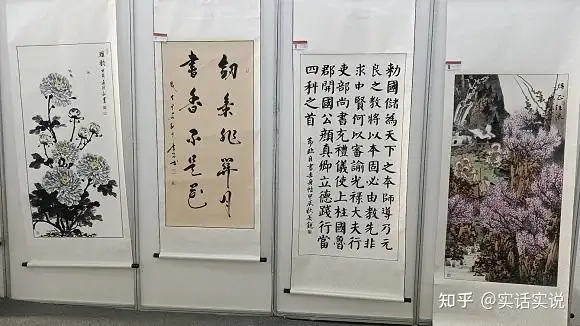 劍氣非關月
書香不是花
勅國儲為天下之本師導乃元
良之教將以本固必由教先非
求中賢何以審諭光祿大夫行
吏部尚書充禮儀使上柱國魯
郡開國公顏真卿立德踐行當
四科之首
知乎 @实话实说